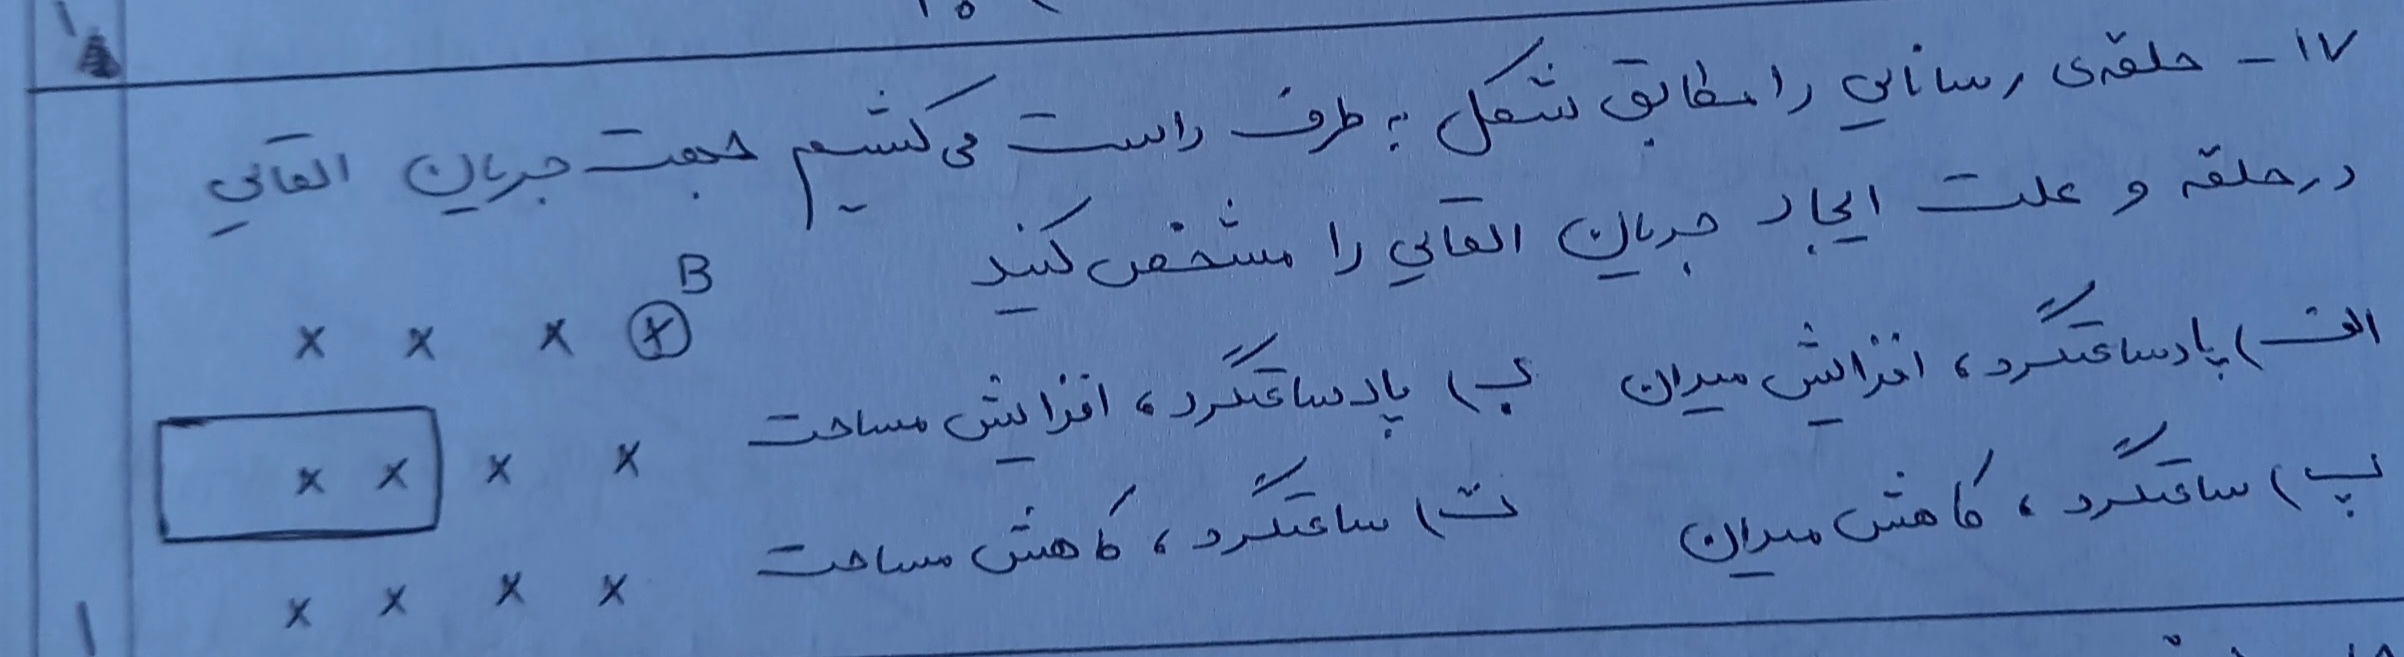 ۱۷ - حلقه‌ی رسانایی را مطابق شکل به طرف راست می‌کشیم جهت جریان القایی
در حلقه و علت ایجاد جریان القایی را مشخص کنید
الف) پادساعتگرد، افزایش میدان ب) پادساعتگرد، افزایش مساحت
پ) ساعتگرد، کاهش میدان ت) ساعتگرد، کاهش مساحت
B
x x x x
x x x x
x x x x
۱